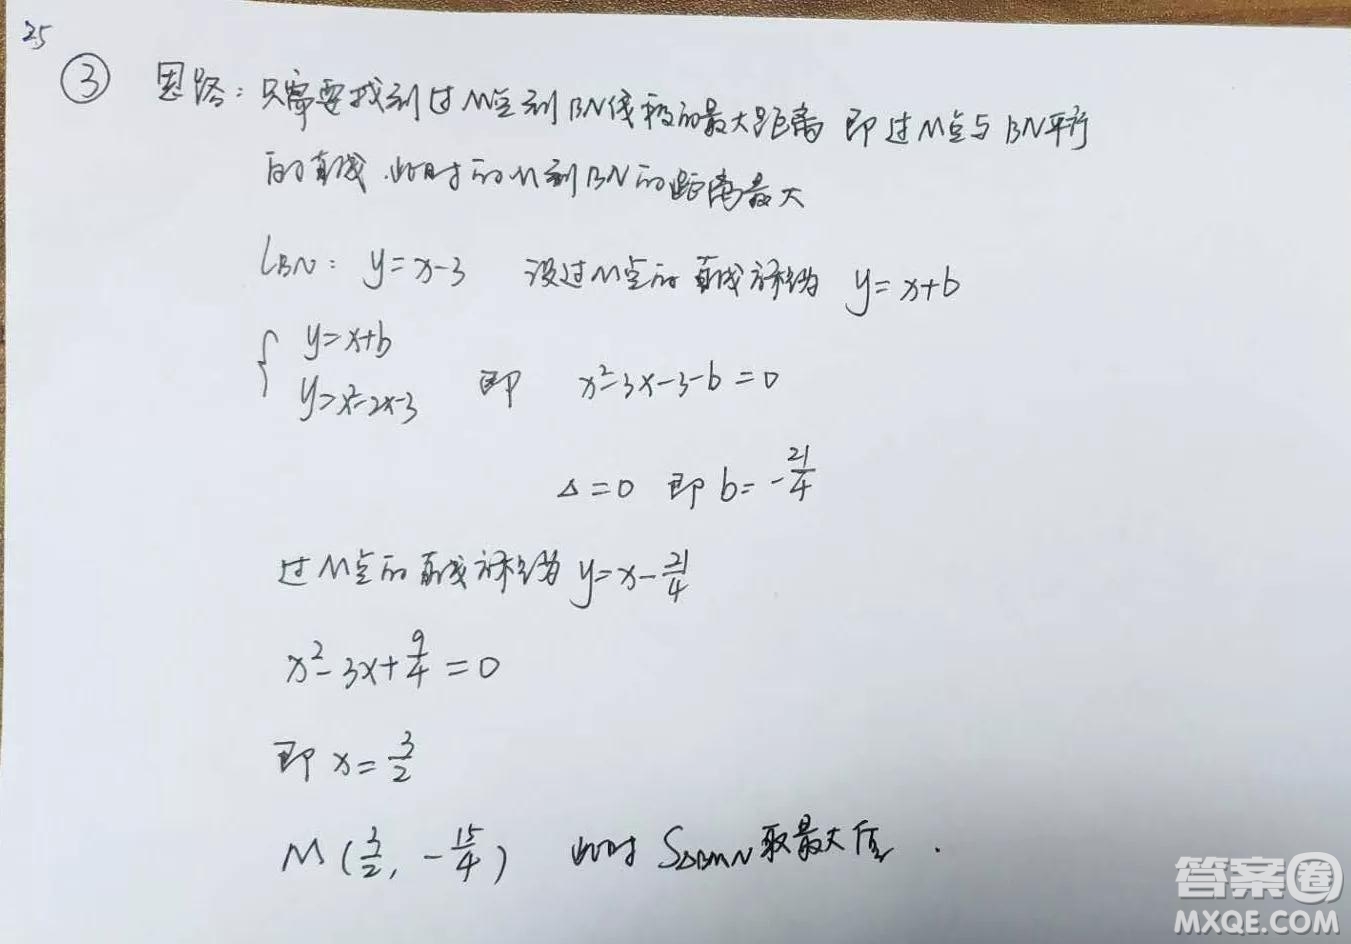 25
③ 思路：只需要找到过M点到BN线段的最大距离 即过M点与BN平行
的直线.此时的M到BN的距离最大
L_BN：y=x-3 设过M点的直线方程为 y=x+b
{ y=x+b
y=x²-2x-3 即 x²-3x-3-b=0
Δ=0 即 b=-21/4
过M点的直线方程为 y=x-21/4
x²-3x+9/4=0
即 x=3/2
M(3/2, -15/4) 此时 S△BMN 取最大值.
答案圈
MXQE.COM